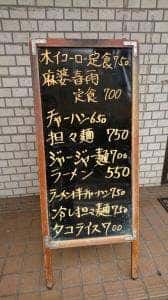 ホイコーロー定食750
麻婆春雨
定食700
チャーハン650
担々麺 750
ジャージャー麺700
ラーメン 550
ラーメン+半チャーハン750
冷し担々麺750
タコライス700